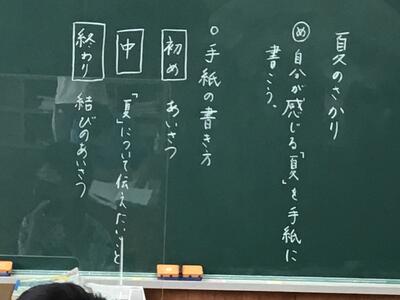 夏のさかり
め 自分が感じる「夏」を手紙に
書こう。
○手紙の書き方
初め あいさつ
中 「夏」について伝えたいこと
終わり 結びのあいさつ